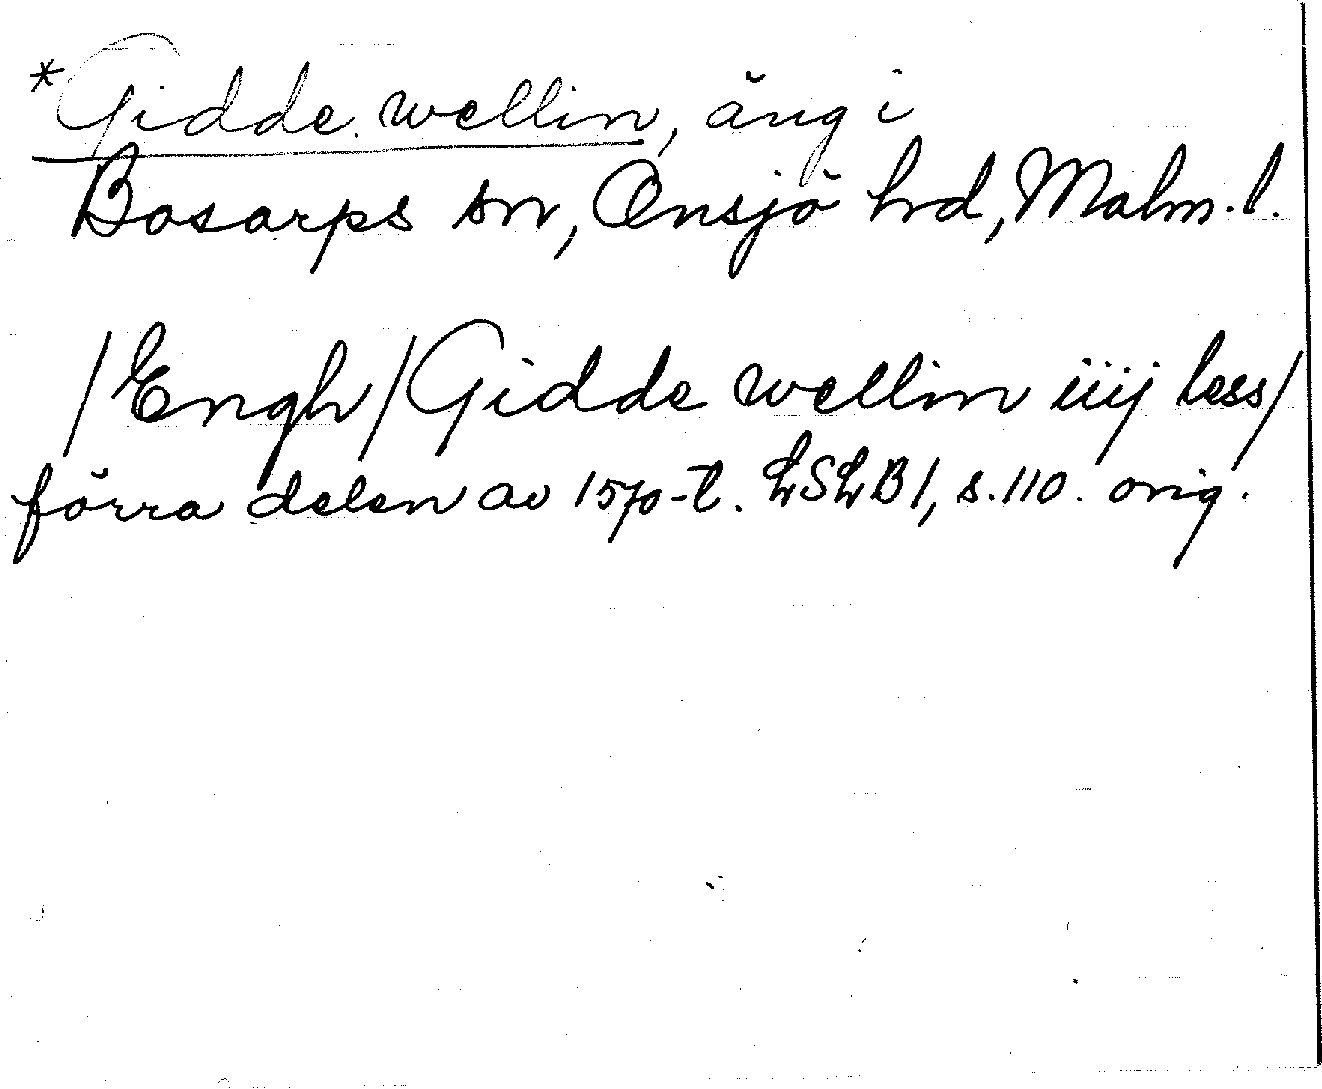 *Gidde wellin, äng i
Bosarps sn, Onsjö hrd, Malm. l.
/Engh/ Gidde wellin iiij less/
förra delen av 1570-t. LSLB1, s. 110. orig.